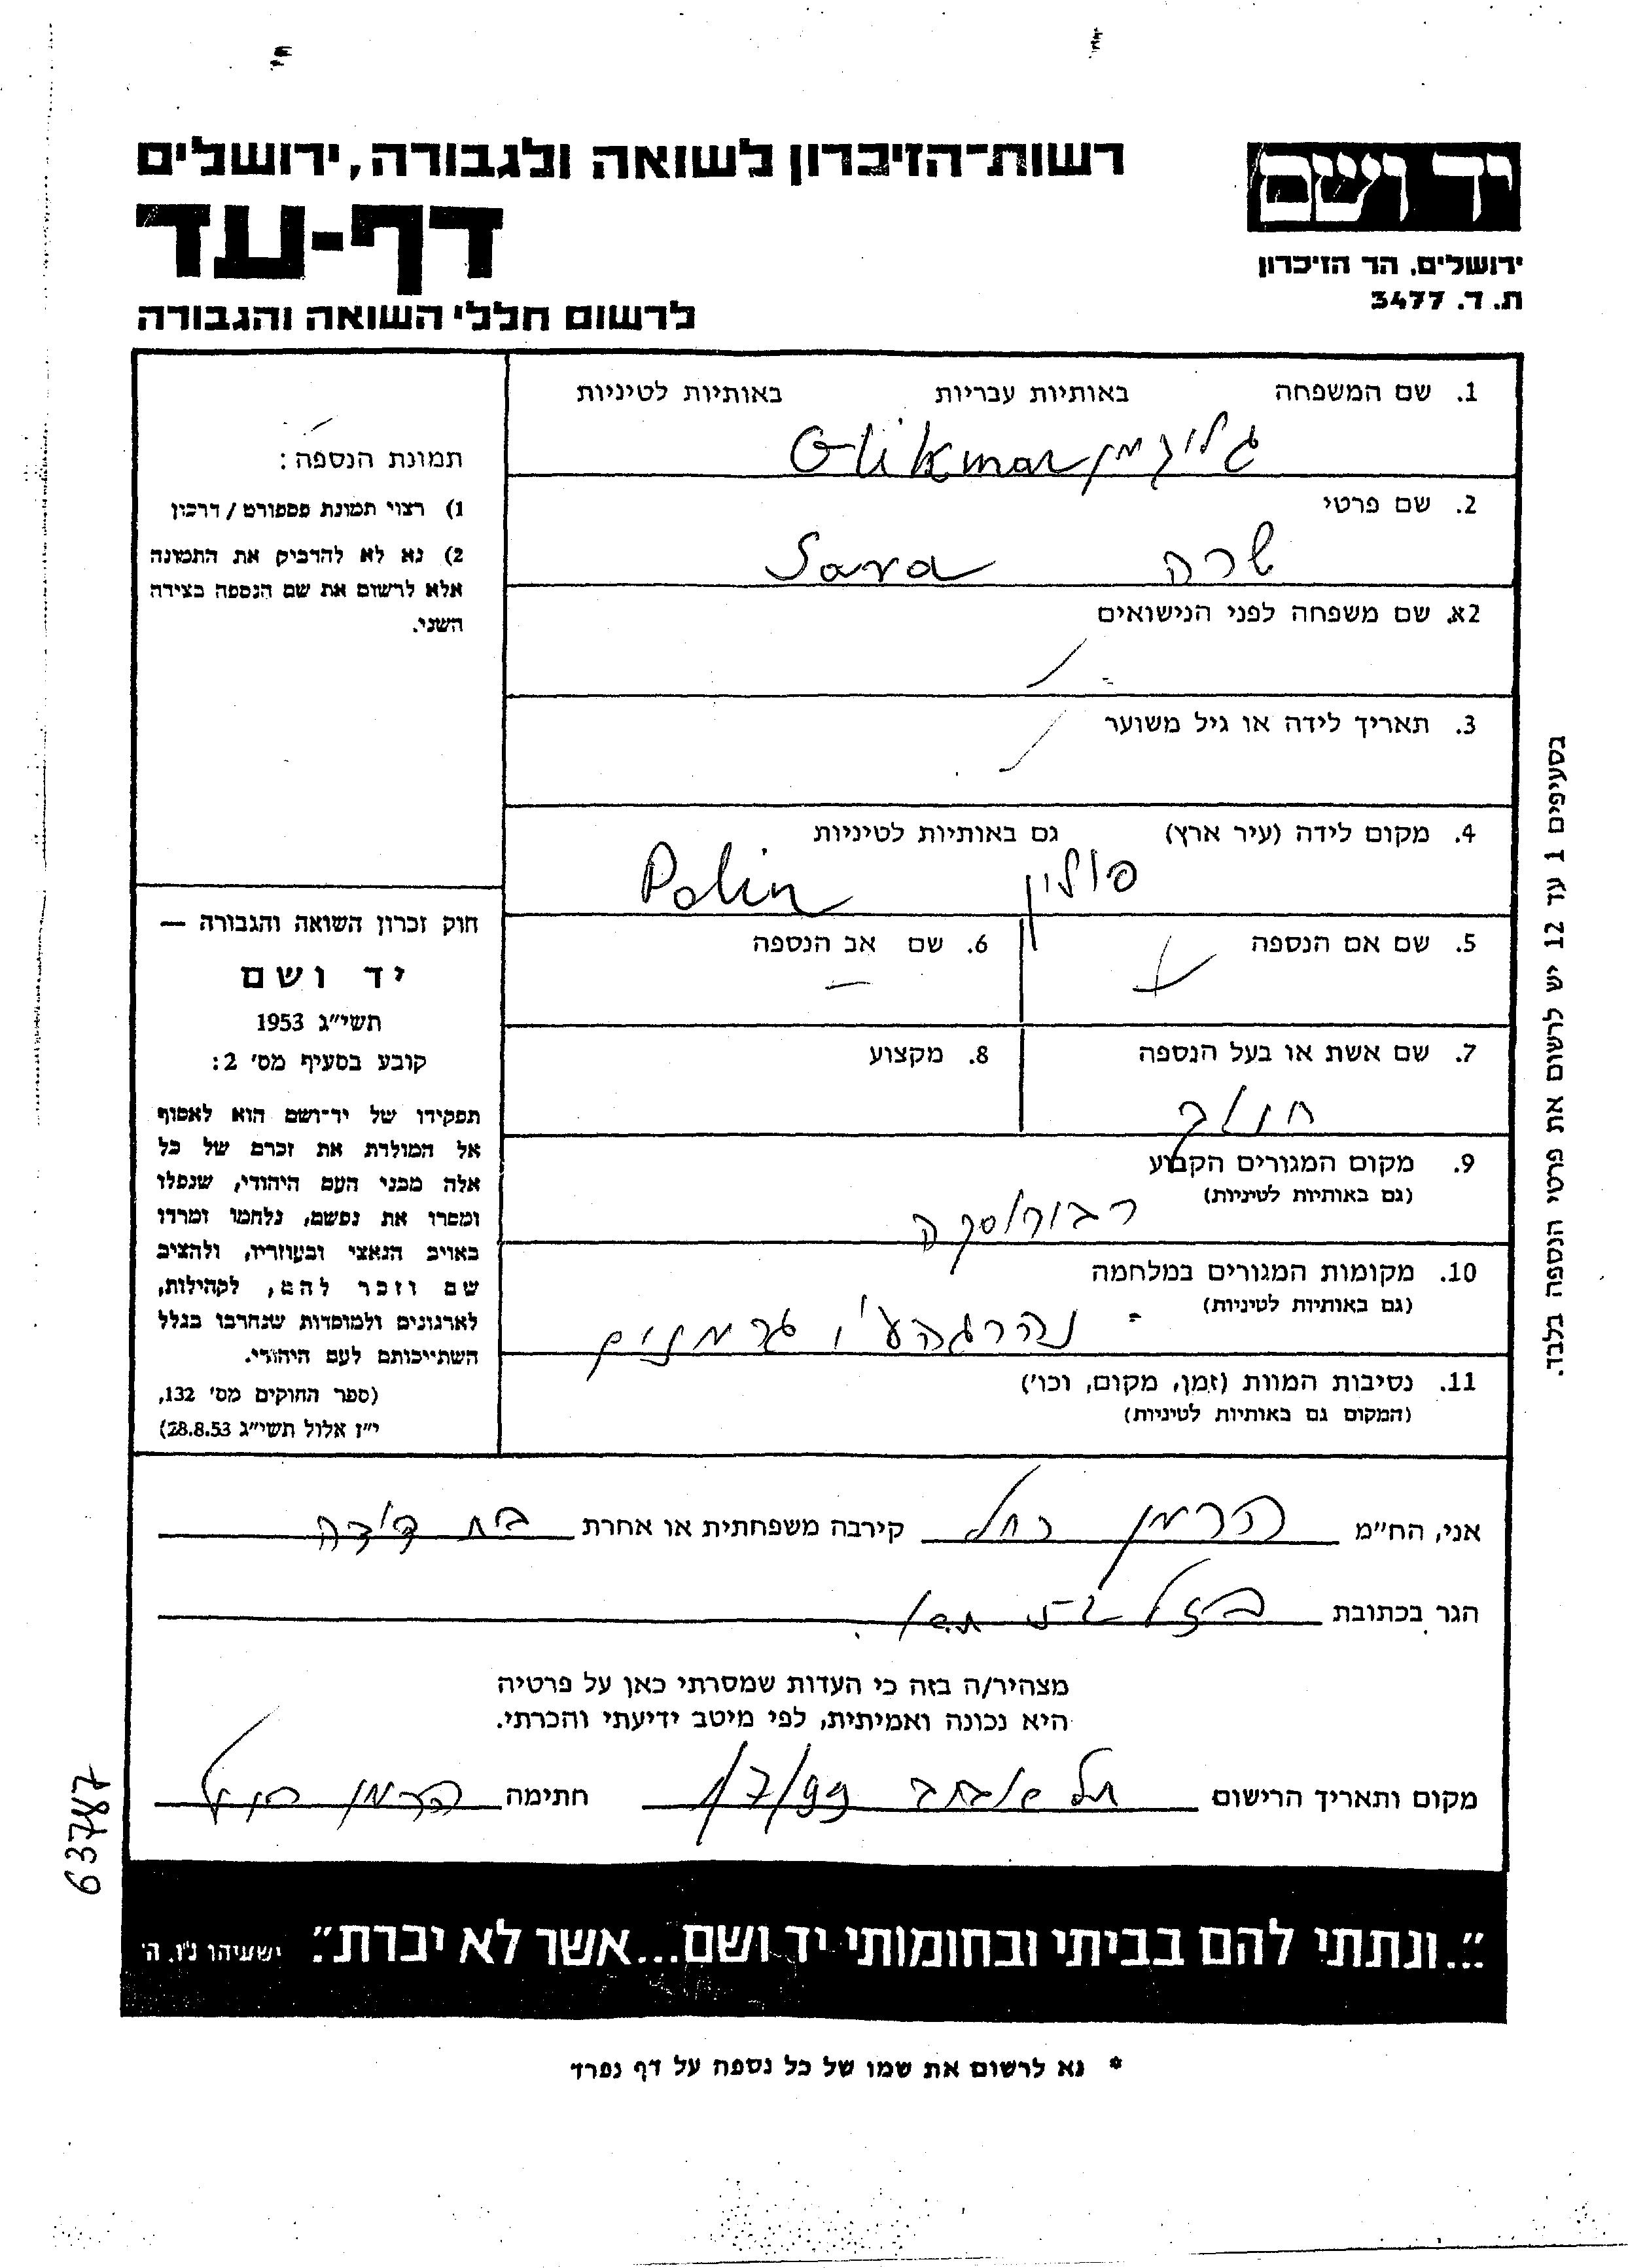 רשות-הזיכרון לשואה ולגבורה, ירושלים
דף-עד
לרשום חללי השואה והגבורה
יד ושם
ירושלים, הר הזיכרון
ת. ד. 3477
1. שם המשפחה באותיות עבריות באותיות לטיניות
גליקמן Glikman
2. שם פרטי
שרה Sara
2א. שם משפחה לפני הנישואים
3. תאריך לידה או גיל משוער
4. מקום לידה (עיר ארץ) גם באותיות לטיניות
פולין Polin
5. שם אם הנספה 6. שם אב הנספה
7. שם אשת או בעל הנספה 8. מקצוע
9. מקום המגורים הקבוע
(גם באותיות לטיניות)
10. מקומות המגורים במלחמה
(גם באותיות לטיניות)
11. נסיבות המוות (זמן, מקום, וכו')
(המקום גם באותיות לטיניות)
תמונת הנספה:
1) רצוי תמונת פספורט / דרכון
2) נא לא להדביק את התמונה
אלא לרשום את שם הנספה בצידה
השני.
חוק זכרון השואה והגבורה —
יד ושם
תשי"ג 1953
קובע בסעיף מס' 2:
תפקידו של יד-ושם הוא לאסוף
אל המולדת את זכרם של כל
אלה מבני העם היהודי, שנפלו
ומסרו את נפשם, נלחמו ומרדו
באויב הנאצי ובעוזריו, ולהציב
שם וזכר להם, לקהילות,
לארגונים ולמוסדות שנחרבו בגלל
השתייכותם לעם היהודי.
(ספר החוקים מס' 132,
י"ז אלול תשי"ג 28.8.53)
בסעיפים 1 עד 12 יש לרשום את פרטי הנספה בלבד.
אני, הח"מ הרמן רחל קירבה משפחתית או אחרת בת דודה
הגר בכתובת
מצהיר/ה בזה כי העדות שמסרתי כאן על פרטיה
היא נכונה ואמיתית, לפי מיטב ידיעתי והכרתי.
מקום ותאריך הרישום תל אביב 1/7/99 חתימה הרמן רחל
63787
"...ונתתי להם בביתי ובחומותי יד ושם...אשר לא יכרת". ישעיהו נ"ו, ה'
* נא לרשום את שמו של כל נספה על דף נפרד